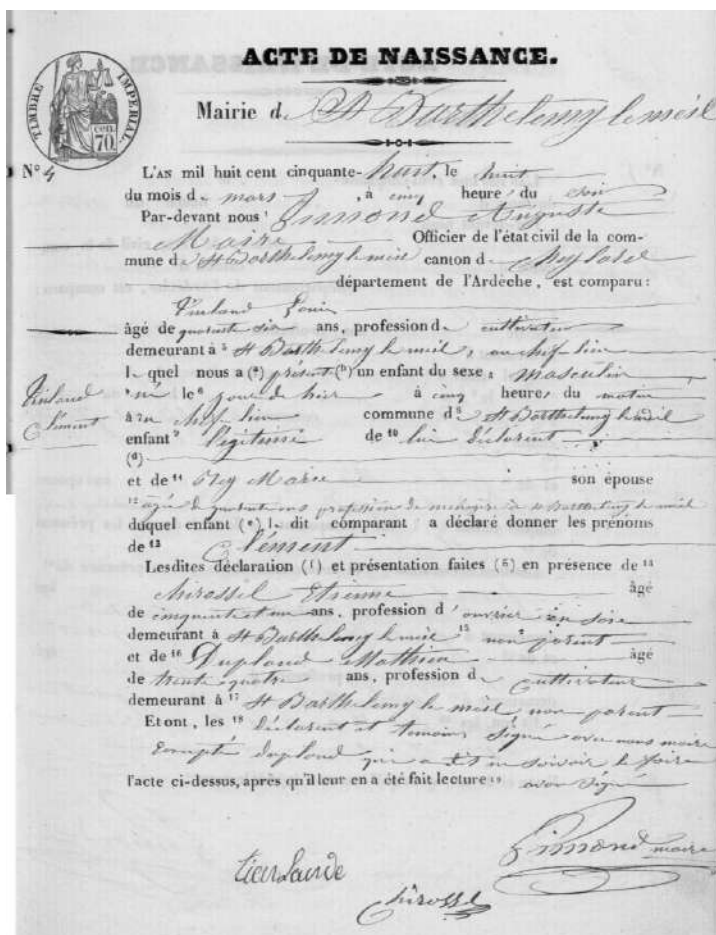 ACTE DE NAISSANCE.
TIMBRE IMPERIAL
cen. 70.
Mairie d. St Barthelemy le meil
N° 4
L'AN mil huit cent cinquante-huit, le huit
du mois d. mars, à cinq heure du soir
Par-devant nous Auguste
Maire Officier de l'état civil de la com-
mune d. St Barthelemy le meil canton d. Cheylard
département de l'Ardèche, est comparu:
Louis
âgé de quarante six ans, profession d. cultivateur
demeurant à 5 St Barthelemy le meil, au chef-lieu
l. quel nous a (a) présenté (b) un enfant du sexe masculin
né le 6 jour de hier à cinq heures du matin
Clément
à au chef-lieu commune d. 8 St Barthelemy le meil
enfant 9 légitime de 10 lui déclarent
(d)
et de 11 Rey Marie son épouse
12 agé de quarante ans profession de ménagère à St Barthelemy le meil
duquel enfant (e) l. dit comparant a déclaré donner les prénoms
de 13 Clément
Lesdites déclaration (f) et présentation faites (g) en présence de 14
Chirossel Etienne âgé
de cinquante et un ans, profession d'ouvrier en soie
demeurant à St Barthelemy le meil 15 non parent
et de 16 Duplaud Mathieu âgé
de trente quatre ans, profession d. cultivateur
demeurant à 17 St Barthelemy le meil non parent
Et ont, les 18 déclarent et temoins signé avec nous maire
Excepté duplaud qui a dit ne savoir le faire
l'acte ci-dessus, après qu'il leur en a été fait lecture 19 avons signé
maire
Chirossel